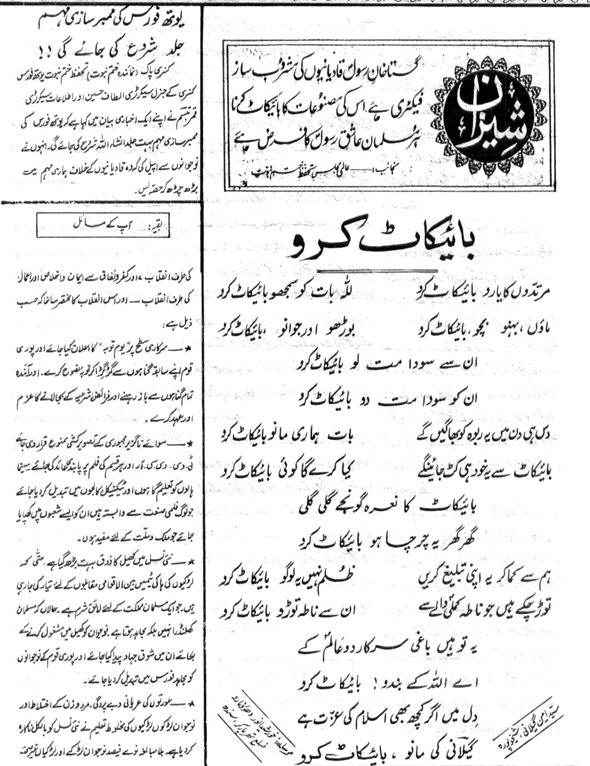 یوتھ فورس کی ممبر سازی مہم
جلد شروع کی جائے گی !!
کنری پاک (نمائندہ ختم نبوت) تحفظ ختم نبوت یوتھ فورس
کنری کے جنرل سیکرٹری الطاف حسین اور اطلاعات سیکرٹری
قمر تبسم نے اپنے ایک اخباری بیان میں کہا ہے کہ یوتھ فورس کی
ممبر سازی مہم بہت جلد انشاء اللہ شروع کی جائے گی۔ انہوں نے
نوجوانوں سے اپیل کی کہ وہ قادیانیوں کے خلاف جاری مہم میں
بڑھ چڑھ کر حصہ لیں۔
بقیہ: آپ کے مسائل
کی طرف انقلاب، اور کفر و نفاق سے ایمان و اخلاص اور اعمال
کی طرف انقلاب — اور اس انقلاب کا مختصر سا خاکہ حسب
ذیل ہے:
★— سرکاری سطح پر "یوم توبہ" کا اعلان کیا جائے اور پوری
قوم اپنے سابقہ گناہوں سے گڑگڑا کر توبہ نصوح کرے، اور آئندہ
تمام گناہوں سے باز رہنے اور فرائض شرعیہ کے بجا لانے کا عزم
اور عہد کرے۔
★— سوائے ناگزیر مجبوری کے تصویر کشی ممنوع قرار دی جائے
ٹی۔وی۔ وی سی آر اور ہر قسم کی فلم پر پابندی عائد کی جائے سینما
ہالوں کو تعلیم گاہوں اور ٹیکنیکل کالجوں میں تبدیل کر دیا جائے
جو لوگ فلمی صنعت سے وابستہ ہیں ان کو ایسے شعبوں میں کھپایا
جائے جو ملک و ملت کے لئے مفید ہوں۔
★— نئی نسل میں کھیل کا ذوق بہت بڑھ گیا ہے، حتیٰ کہ
لڑکیوں کی ہاکی ٹیمیں بین الاقوامی مقابلوں کے لئے تیار کی جا رہی
ہیں، جو ایک مسلمان مملکت کے لئے لائق شرم ہے۔ حالاں کہ مسلمان
کھلنڈرا نہیں بلکہ مجاہد ہوتا ہے۔ نوجوان کو کھیل میں مشغول کرنے کے
بجائے ان میں شوق جہاد پیدا کیا جائے اور پوری قوم کے نوجوانوں
کو مجاہد فورس میں تبدیل کر دیا جائے۔
★— عورتوں کی عریانی و بے پردگی، مرد و زن کے اختلاط اور
نوجوان لڑکوں لڑکیوں کی مخلوط تعلیم نے نئی نسل کو بالکل ناکارہ
کر دیا ہے، بلا مبالغہ نوے فیصد نوجوان لڑکے اور لڑکیاں
شیزان
گستاخان رسول قادیانیوں کی مشروب ساز
فیکٹری ہے اس کی مصنوعات کا بائیکاٹ کرنا
ہر مسلمان عاشق رسول کا فرض ہے
منجانب:— عالمی مجلس تحفظ ختم نبوت
بائیکاٹ کرو
مرتدوں کا یارو بائیکاٹ کرو للہ بات کو سمجھو بائیکاٹ کرو
ماؤں، بہنو بچو، بائیکاٹ کرو بوڑھو اور جوانو، بائیکاٹ کرو
ان سے سودا مت لو بائیکاٹ کرو
ان کو سودا مت دو بائیکاٹ کرو
دس ہی دن میں یہ ربوہ کو بھاگیں گے بات ہماری مانو بائیکاٹ کرو
بائیکاٹ سے یہ خود ہی کٹ جائینگے کیا کرے گا کوئی بائیکاٹ کرو
بائیکاٹ کا نعرہ گونجے گلی گلی
گھر گھر یہ چرچا ہو بائیکاٹ کرو
ہم سے کما کر یہ اپنی تبلیغ کریں ظلم نہیں یہ لوگو بائیکاٹ کرو
توڑ چکے ہیں جو ناطہ کملی والے سے ان سے ناطہ توڑو بائیکاٹ کرو
یہ تو ہیں باغی سرکار دو عالم کے
اے اللہ کے بندو! بائیکاٹ کرو
دل میں اگر کچھ بھی اسلام کی عزت ہے
گیلانی کی مانو، بائیکاٹ کرو
سید امین گیلانی، شیخوپورہ